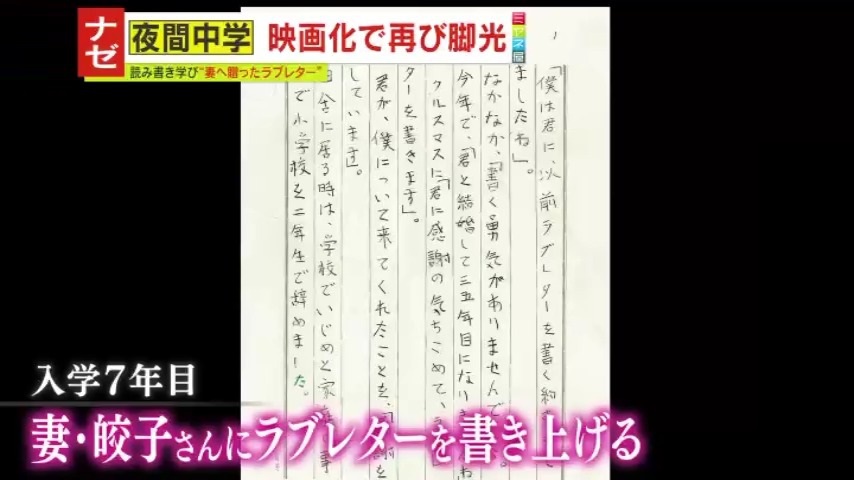 ナゼ
夜間中学 映画化で再び脚光
ミヤネ屋
読み書き学び“妻へ贈ったラブレター”
1
「僕は君に、以前ラブレターを書く約
ましたね」。
なかなか、「書く勇気がありませんで
今年で、「君と結婚して三五年目になりま
クルスマスに「君に感謝の気ちこめて、
ターを書きます」。
君が、僕について来てくれたことを、
しています」。
舎に居る時は、学校でいじめと家 事
で小学校を二年生で辞めました。
入学7年目
妻・皎子さんにラブレターを書き上げる